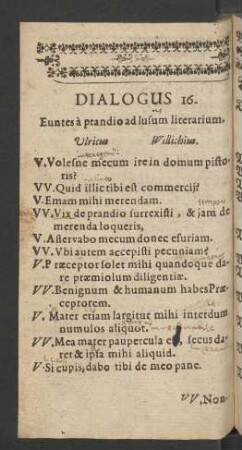 DIALOGUS 16.
Euntes à prandio ad lusum literarium.
Ulricus Willichius.
V. Volesne mecum ire in domum pisto-
ris?
VV. Quid illic tibi est commercij?
V. Emam mihi merendam.
VV. Vix de prandio surrexisti, & jam de
merenda loqueris,
V. Asservabo mecum donec esuriam.
VV. Vbi autem accepisti pecuniam?
V. Præceptor solet mihi quandoque da-
re præmiolum diligentiæ.
VV. Benignum & humanum habes Præ-
ceptorem.
V. Mater etiam largitur mihi interdum
numulos aliquot.
VV. Mea mater paupercula est, secus da-
ret & ipsa mihi aliquid.
V. Si cupis, dabo tibi de meo pane.
VV. Non